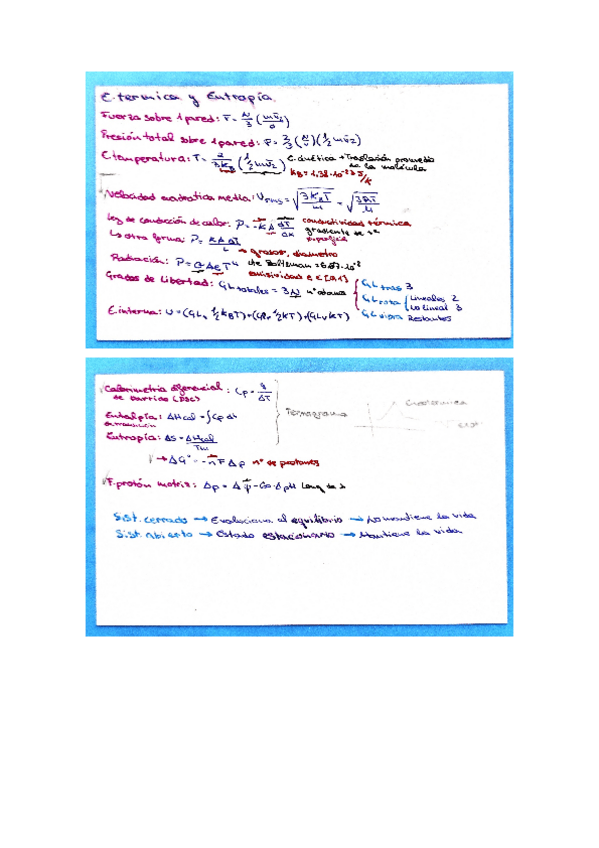 E. termica y Entropía
Fuerza sobre 1 pared: F = N/3 (m v̄²/d)
Presión total sobre 1 pared: P = 2/3 (N/V)(1/2 m v̄²)
E. temperatura: T = 2/3kB (1/2 m v̄²) E. cinética + Traslación promedio de la molécula
kB = 1,38·10⁻²³ J/K
Velocidad cuadratica media: Vrms = √(3KBT/m) = √(3RT/M)
Ley de conducción de calor: P = -KA dT/dx conductividad térmica
gradiente de
↳ otra forma: P = KAΔT/L → grosor, diametro
Radiación: P = σAeT⁴ cte Boltzman = 5.67·10⁻⁸
emisividad e ∈ [0,1]
Grados de libertad: GL totales = 3N nº atomos
GL tras 3
GL rota Lineales 2
No lineal 3
GL vibra Restantes
E. interna: U = (GLt 1/2 kBT) + (GLr 1/2 KT) + (GLv KT)
Calorimetria diferencial de barrido (DSC): Cp = q/ΔT
Entalpía: ΔHcal = ∫Cp dt
de transición
Termograma
Entropía: ΔS = ΔHcal/Tm
↳ ΔG = -nFΔp nº de protones
F. protón motriz: Δp = Δψ - 60·ΔpH
Sist. cerrado → Evoluciona al equilibrio → No mantiene la vida
Sist. Abierto → Estado estacionario → Mantiene la vida